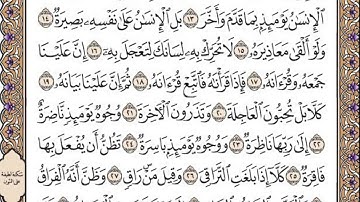 ٱلۡإِنسَٰنُ يَوۡمَئِذِۭ بِمَا قَدَّمَ وَأَخَّرَ ١٣ بَلِ ٱلۡإِنسَٰنُ عَلَىٰ نَفۡسِهِۦ بَصِيرَةٞ ١٤
وَلَوۡ أَلۡقَىٰ مَعَاذِيرَهُۥ ١٥ لَا تُحَرِّكۡ بِهِۦ لِسَانَكَ لِتَعۡجَلَ بِهِۦٓ ١٦ إِنَّ عَلَيۡنَا
جَمۡعَهُۥ وَقُرۡءَانَهُۥ ١٧ فَإِذَا قَرَأۡنَٰهُ فَٱتَّبِعۡ قُرۡءَانَهُۥ ١٨ ثُمَّ إِنَّ عَلَيۡنَا بَيَانَهُۥ ١٩
كَلَّا بَلۡ تُحِبُّونَ ٱلۡعَاجِلَةَ ٢٠ وَتَذَرُونَ ٱلۡأٓخِرَةَ ٢١ وُجُوهٞ يَوۡمَئِذٖ نَّاضِرَةٌ
٢٢ إِلَىٰ رَبِّهَا نَاظِرَةٞ ٢٣ وَوُجُوهٞ يَوۡمَئِذِۭ بَاسِرَةٞ ٢٤ تَظُنُّ أَن يُفۡعَلَ بِهَا
فَاقِرَةٞ ٢٥ كَلَّآ إِذَا بَلَغَتِ ٱلتَّرَاقِيَ ٢٦ وَقِيلَ مَنۡۜ رَاقٖ ٢٧ وَظَنَّ أَنَّهُ ٱلۡفِرَاقُ